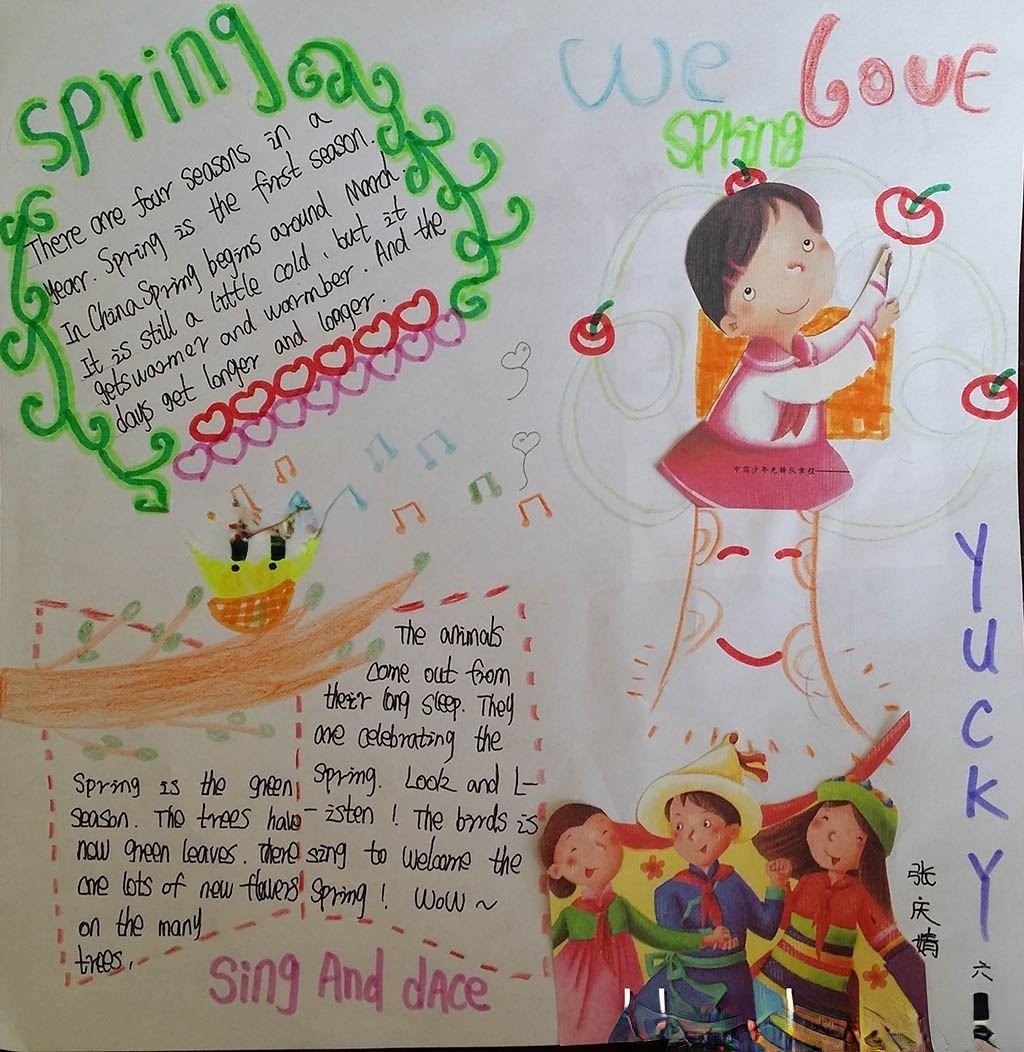 Spring
There are four seasons in a
year. Spring is the first season.
In China Spring begins around March.
It is still a little cold, but it
gets warmer and warmber. And the
days get longer and longer.
We Love
Spring
中国少年先锋队章程
The animals
come out from
their long sleep. They
are celebrating the
Spring. Look and L-
-isten! The birds is
sing to welcome the
Spring! WoW ~
Spring is the green
season. The trees have
now green leaves. There
are lots of new flowers
on the many
trees.
Sing And dAce
YucKY
张庆婧
六